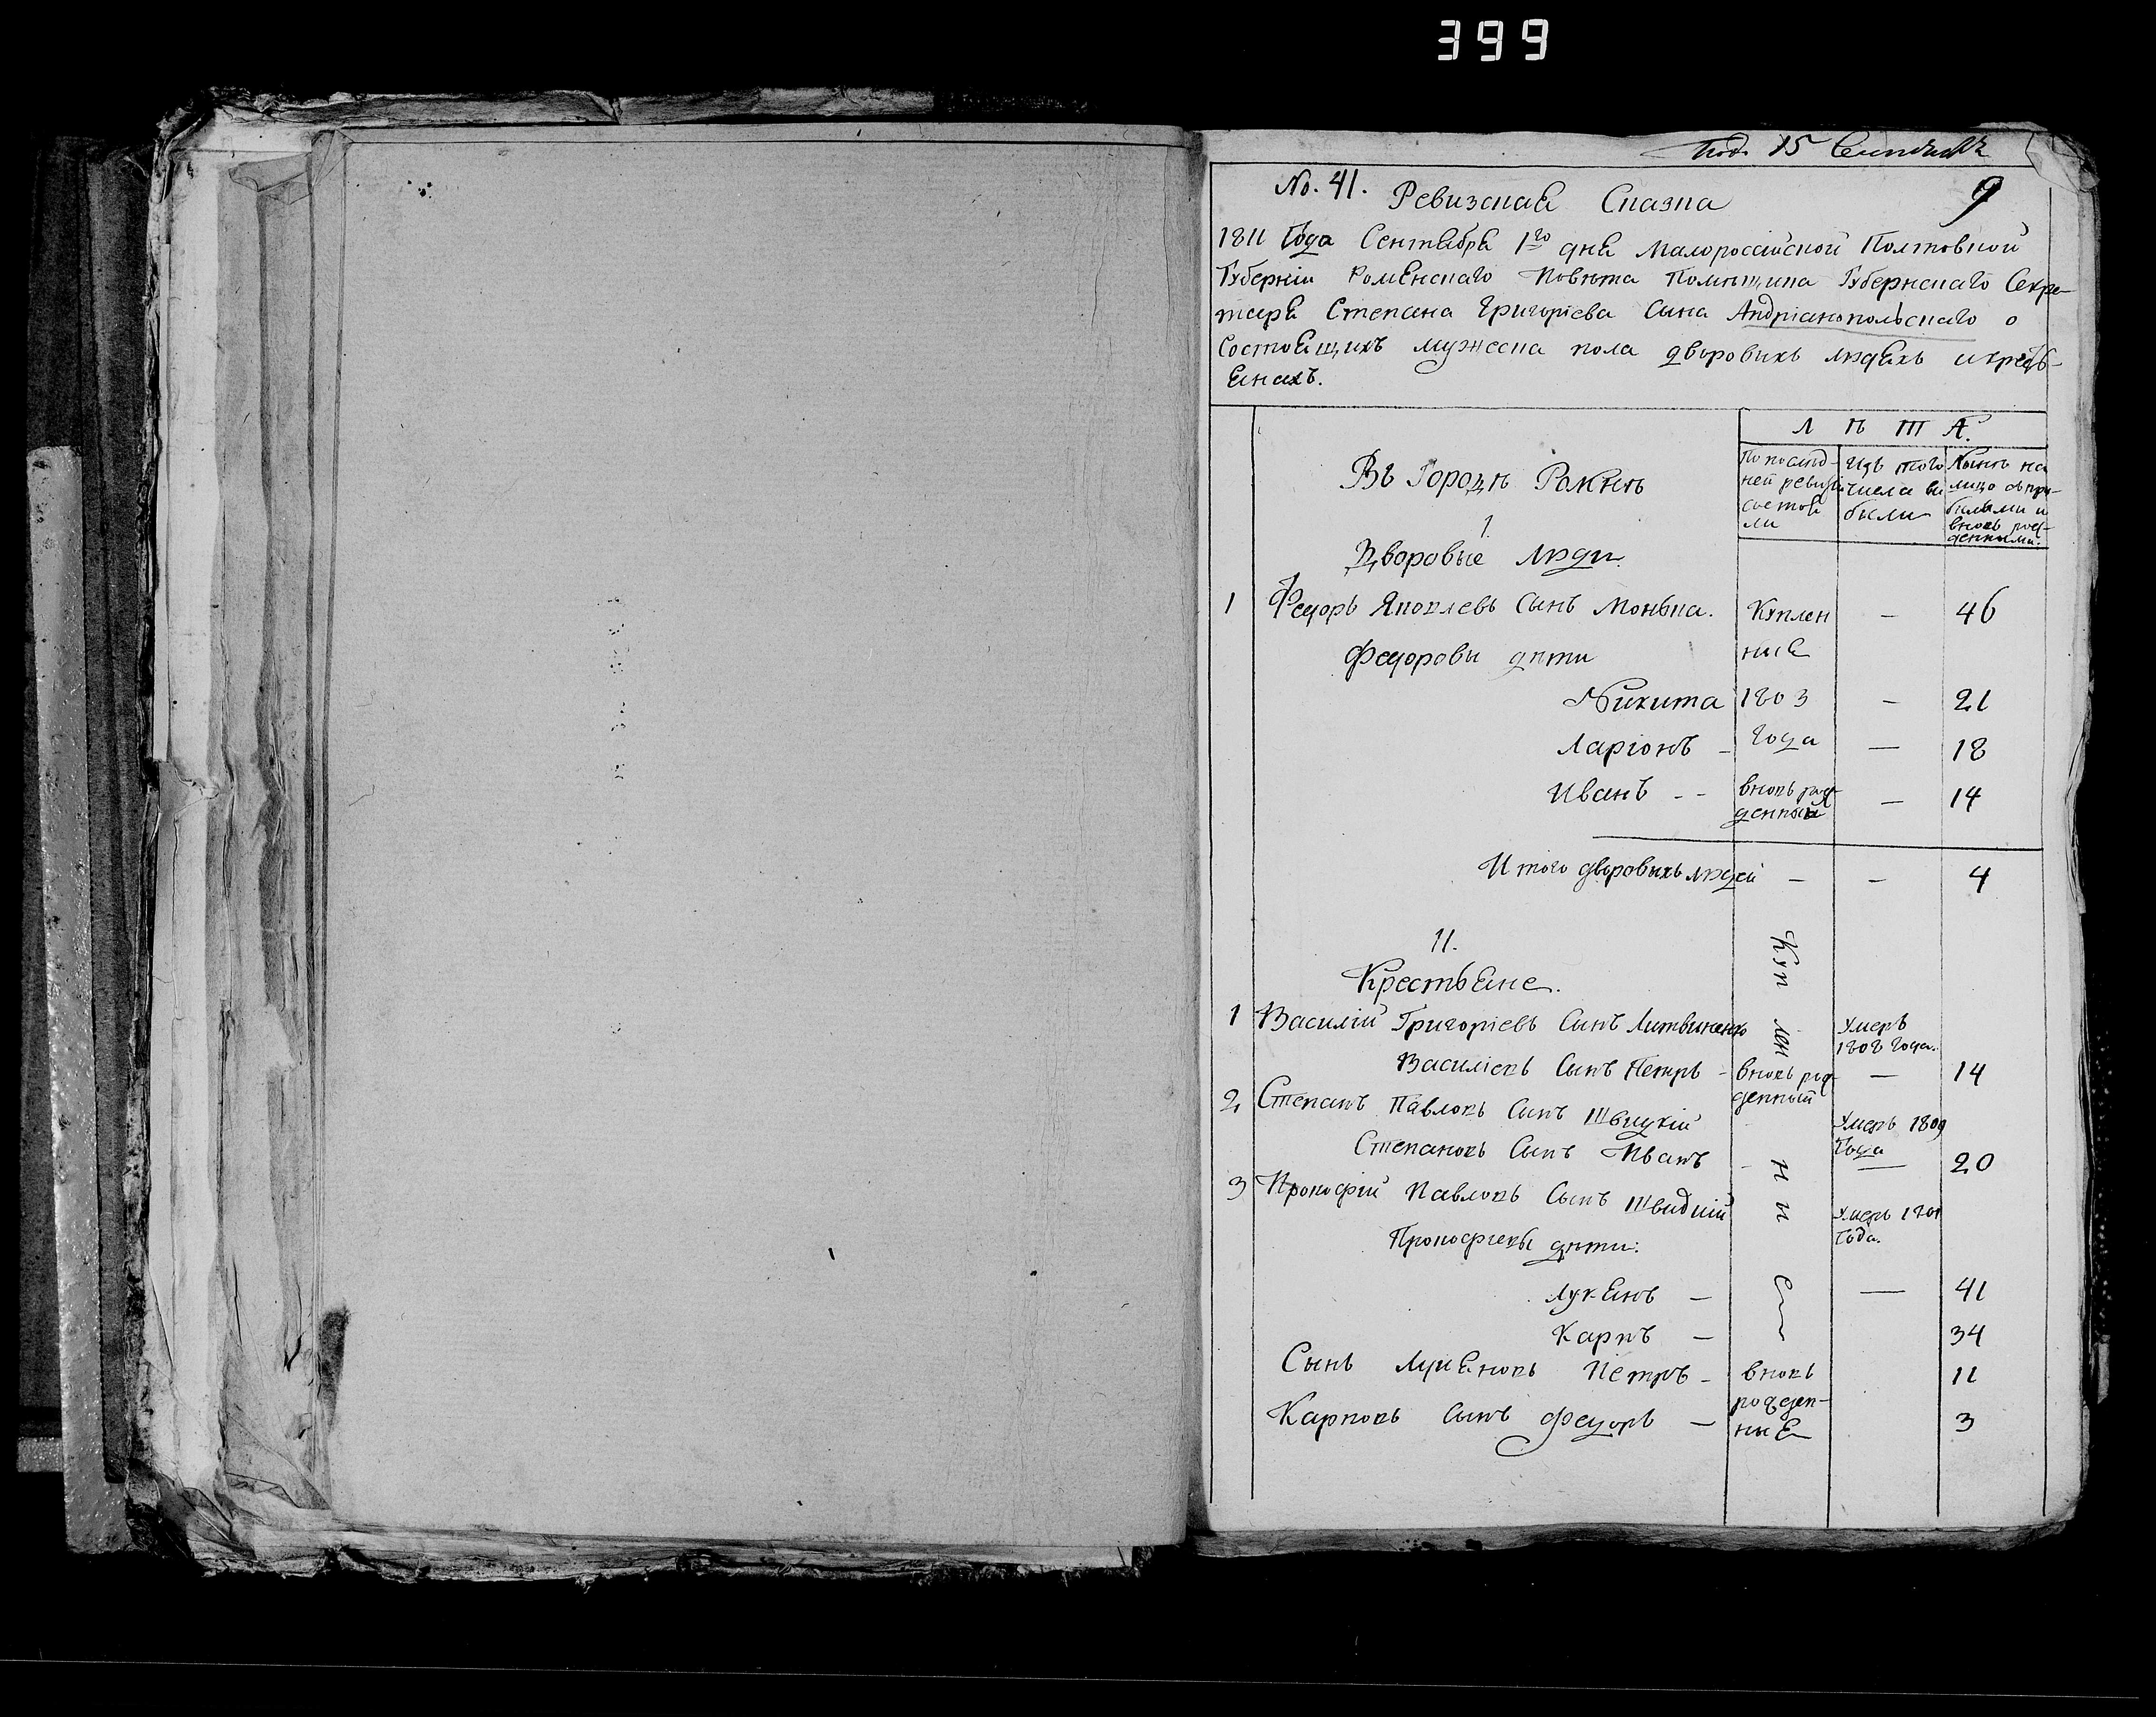 399
Под. 15 Сентября
No. 41. Ревизская Сказка 9
1811 Года Сентября 1го дня Малороссійской Полтовской
Губерніи Роменскаго Повѣта Помѣщика Губернскаго Секре-
таря Степана Григоріева Сина Андріанопольскаго о
Состоящихъ мужеска пола дворовихъ людяхъ и кресть-
янахъ.
Л Ѣ Т А.
По послѣд-
ней ревизіи
состоя
ли
Изъ того
числа ви
были
Нынѣ на
лицо съ при-
былыми и
вновь рож-
денними.
Въ Городѣ
1
Дворовые люди
1 Федоръ Яковлевъ Сынъ Монька. Куплен — 46
Федорови дѣти ние
Никита 1803 — 21
Ларіонъ – года — 18
Иванъ - - вновь рож-
денный — 14
И того дворовыхъ людей — — 4
II.
Крестьяне.
Куп
лен
н
и
е
1 Василій Григоріевъ Синъ Литвиненко умеръ
1808 года.
Василіевъ Сынъ Петръ - вновь рож-
денный — 14
2 Степанъ Павловъ Синъ Швидкій умеръ 1809
Года
Степановъ Сынъ Иванъ - — 20
3 Прокофій Павловъ Сынъ Швидкій умеръ 1801
Года.
Прокофіевы дѣти:
Лукянъ — — 41
Карпъ — 34
Сынъ Лукяновъ Петръ - вновь 11
рожден-
Карповъ Сынъ Федоръ — ние 3